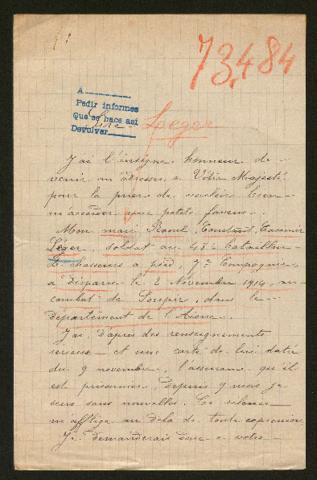 73,484
A
Pedir informes
Que se hace asi
Devolver
Leger
J'ai l'insigne honneur de
venir m'adresser à Votre Majesté
pour la prier de vouloir bien
m'accorder une petite faveur.
Mon mari Raoul, Constant, Casimir
Léger, soldat au 48e bataillon
de chasseurs à pied, 7e Compagnie
a disparu le 2 Novembre 1914, au
combat de Soupir, dans le
département de l'Aisne.
J'ai d'après des renseignements
et une carte de lui datée
du 9 novembre, l'assurance qu'il
est prisonnier. Depuis 9 mois je
suis sans nouvelles. Ce silence
m'afflige au delà de toute expression
Je demanderais donc à votre